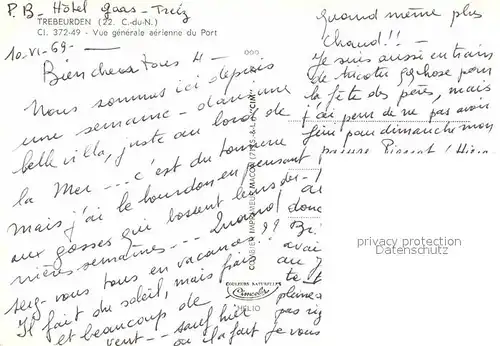 P.B- Hôtel Gaas-Treiz
TREBEURDEN (22. C.-du-N.)
Cl. 372-49 - Vue générale aérienne du Port
10-VI-69-
Bien chers tous 4 -
Nous sommes ici depuis
une semaine - dans une
belle villa, juste au bord de
la Mer --- c'est du tonnerre
mais j'ai le bourdon en pensant
aux gosses qui bossent leurs der-
nières semaines --- Quand
serez-vous tous en vacances ??
Il fait du soleil, mais frais
et beaucoup de
vent -- sauf hier
où il a fait
quand même plus
chaud!! -
Je suis aussi en train
de tricoter qqchose pour
la fête des pères, mais
j'ai peur de ne pas avoir
fini pour dimanche mon
pauvre
donc
Bri
avai
au
te
pleines
pas
je vous
COULEURS NATURELLES
HELIO
privacy protection
Datenschutz